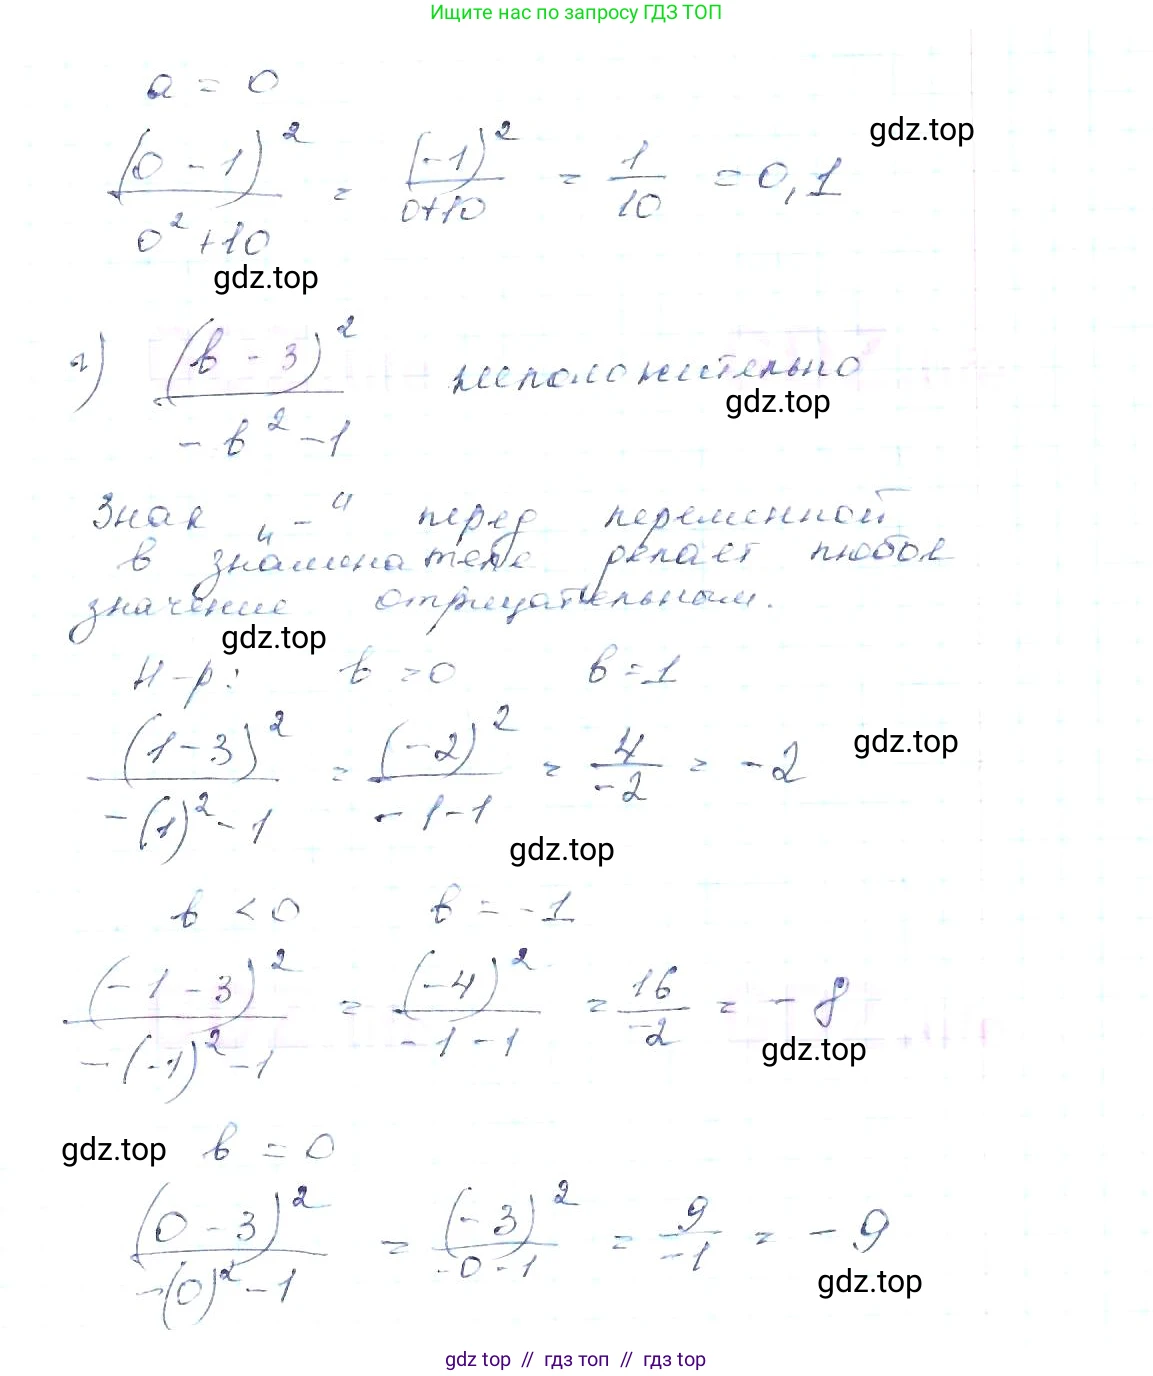 Ищите нас по запросу ГДЗ ТОП
a = 0
(0 - 1)² / (0² + 10) = (-1)² / (0+10) = 1/10 = 0,1
gdz.top
gdz.top
г) (b - 3)² / (- b² - 1) неположительно
gdz.top
Знак „-“ перед переменной
в знаминателе делает любое
значение отрицательным.
gdz.top
Н-р: b > 0 b = 1
(1 - 3)² / (-(1)² - 1) = (-2)² / (-1-1) = 4/-2 = -2
gdz.top
gdz.top
b < 0 b = -1
(-1 - 3)² / (-(-1)² - 1) = (-4)² / (-1-1) = 16/-2 = -8
gdz.top
gdz.top b = 0
(0 - 3)² / (-(0)² - 1) = (-3)² / (-0-1) = 9/-1 = -9
gdz.top
gdz top // гдз топ // гдз top